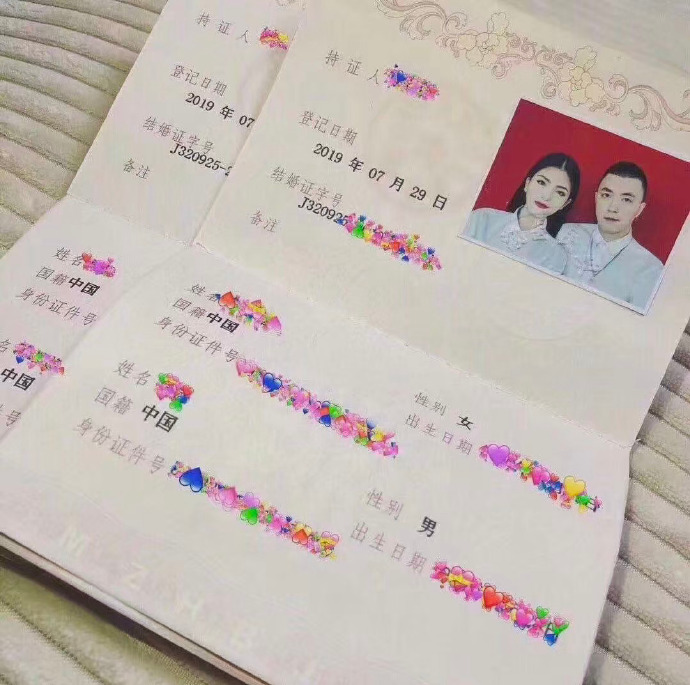 持证人
登记日期
2019 年 07
结婚证字号
J320925-2
备注
姓名
国籍 中国
身份证件号
中国
号
持证人
登记日期
2019 年 07 月 29 日
结婚证字号
J320925
备注
姓名
国籍 中国
身份证件号
性别 女
出生日期
姓名
国籍 中国
身份证件号
性别 男
出生日期
M Z H B